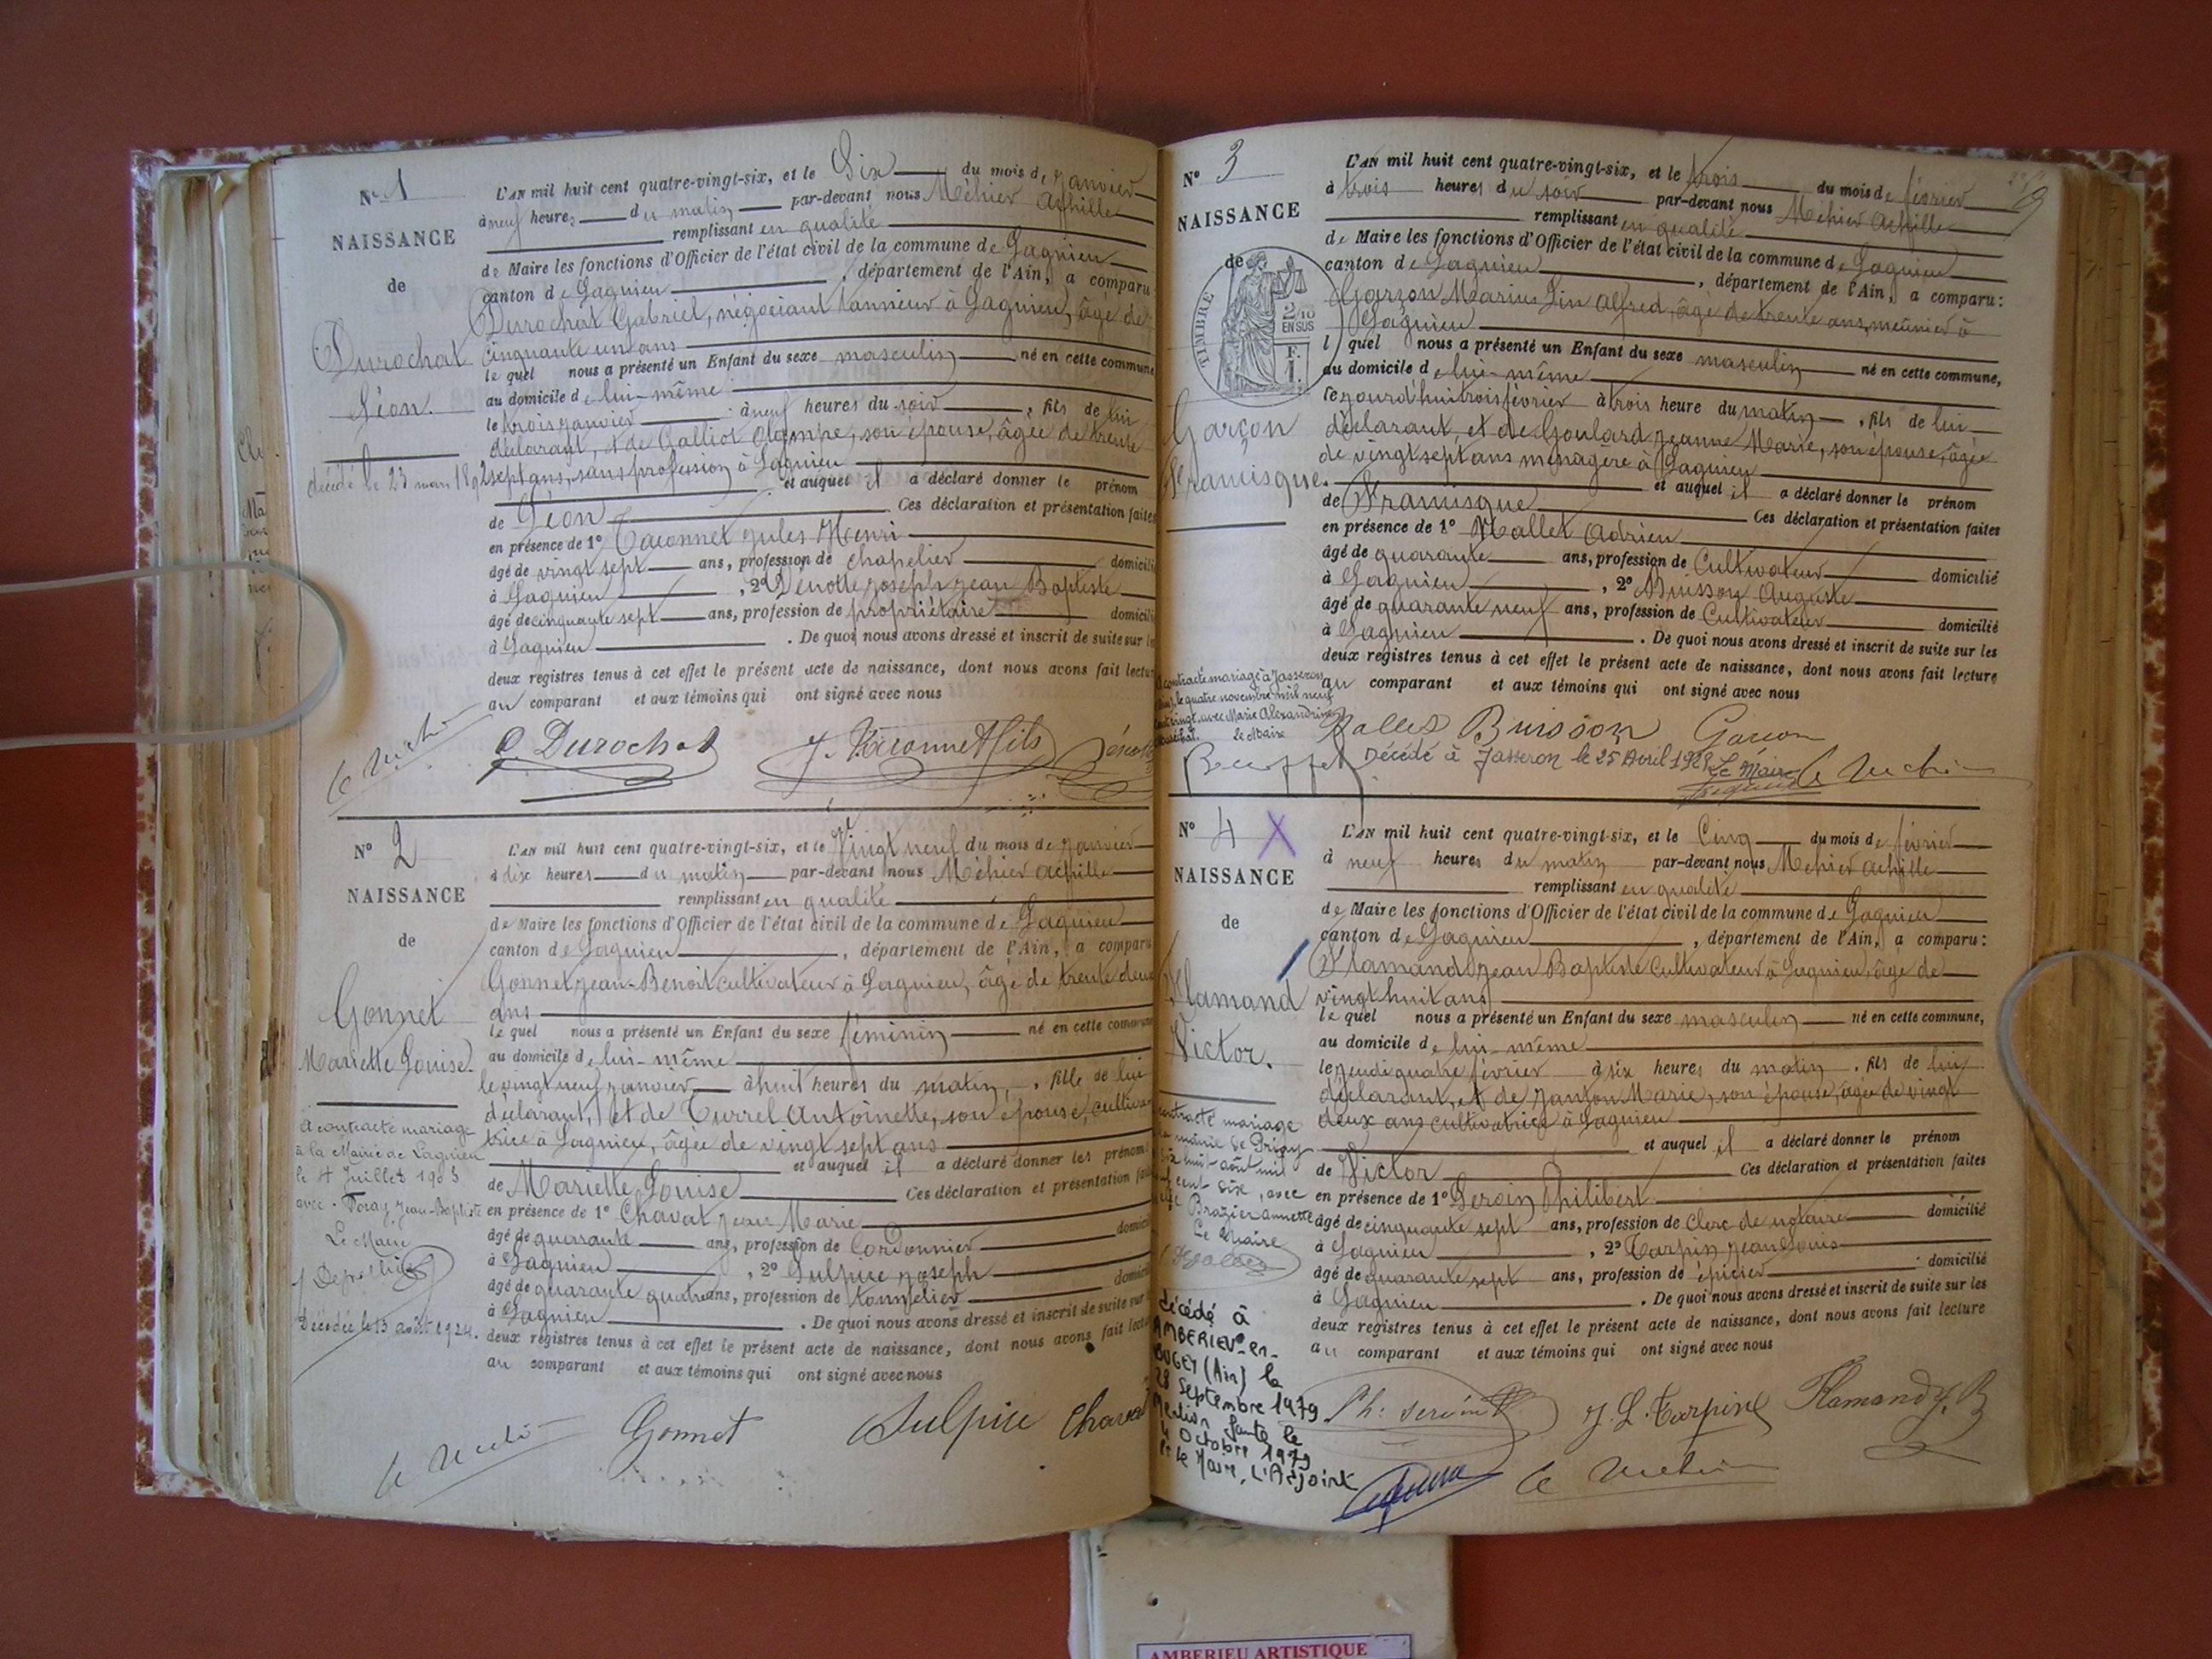 N° 1
NAISSANCE
de
Durochat
Léon.
décédé le 23 mars 1892
L'AN mil huit cent quatre-vingt-six, et le Six du mois de janvier
à neuf heures du matin par-devant nous Méhier Achille
remplissant en qualité
de Maire les fonctions d'Officier de l'état civil de la commune de Lagnieu
canton de Lagnieu, département de l'Ain, a comparu
Durochat Gabriel, négociant tanneur à Lagnieu, âgé de
cinquante un ans
lequel nous a présenté un Enfant du sexe masculin né en cette commune
au domicile de lui-même
le trois janvier à neuf heures du soir, fils de lui
déclarant, et de Galliot Olympe, son épouse, âgée de trente
sept ans, sans profession à Lagnieu
et auquel il a déclaré donner le prénom
de Léon. Ces déclaration et présentation faites
en présence de 1° Taconnet Jules Henri
âgé de vingt sept ans, profession de chapelier domicilié
à Lagnieu, 2° Dénotte Joseph Jean Baptiste
âgé de cinquante sept ans, profession de propriétaire domicili
à Lagnieu. De quoi nous avons dressé et inscrit de suite sur le
deux registres tenus à cet effet le présent acte de naissance, dont nous avons fait lectur
au comparant et aux témoins qui ont signé avec nous
G. Durochat J. Taconnet fils
N° 2
NAISSANCE
de
Gonnet
Mariette Louise.
A contracté mariage
à la Mairie de Lagnieu
le 4 Juillet 1903
avec Foray Jean-Baptiste
Le Maire
Décédée le 13 août 1924.
L'AN mil huit cent quatre-vingt-six, et le Vingt neuf du mois de janvier
à dix heures du matin par-devant nous Méhier Achille
remplissant en qualité
de Maire les fonctions d'Officier de l'état civil de la commune de Lagnieu
canton de Lagnieu, département de l'Ain, a comparu
Gonnet Jean-Benoit cultivateur à Lagnieu, âgé de trente deux
ans
lequel nous a présenté un Enfant du sexe féminin né en cette commune
au domicile de lui-même
le vingt neuf janvier à huit heures du matin, fille de lui
déclarant, et de Turrel Antoinette, son épouse, cultiva
trice à Lagnieu, âgée de vingt sept ans
et auquel il a déclaré donner les prénoms
de Mariette Louise Ces déclaration et présentation fai
en présence de 1° Chavat Jean Marie
âgé de quarante ans, profession de Cordonnier domici
à Lagnieu, 2° Sulpice Joseph
âgé de quarante quatre ans, profession de tonnelier domici
à Lagnieu. De quoi nous avons dressé et inscrit de suite sur
deux registres tenus à cet effet le présent acte de naissance, dont nous avons fait lect
au comparant et aux témoins qui ont signé avec nous
Gonnet Sulpice Chavat
N° 3
NAISSANCE
de
TIMBRE
2/10
EN SUS
F.
1.
Garçon
Francisque.
contracté mariage à Jasseron
le quatre novembre mil neuf
cent vingt, avec Marie Alexandrine
le Maire
L'AN mil huit cent quatre-vingt-six, et le trois du mois de février
à trois heures du soir par-devant nous Méhier Achille
remplissant en qualité
de Maire les fonctions d'Officier de l'état civil de la commune de Lagnieu
canton de Lagnieu, département de l'Ain, a comparu:
Garçon Marius Lin Alfred, âgé de trente ans, meûnier à
Lagnieu
lequel nous a présenté un Enfant du sexe masculin né en cette commune,
au domicile de lui-même
cejourd'hui trois février à trois heure du matin, fils de lui
déclarant, et de Goulard Jeanne Marie, son épouse, âgée
de vingt sept ans ménagère à Lagnieu
et auquel il a déclaré donner le prénom
de Francisque Ces déclaration et présentation faites
en présence de 1° Mallet Adrien
âgé de quarante ans, profession de Cultivateur domicilié
à Lagnieu, 2° Buisson Auguste
âgé de quarante neuf ans, profession de Cultivateur domicilié
à Lagnieu. De quoi nous avons dressé et inscrit de suite sur les
deux registres tenus à cet effet le présent acte de naissance, dont nous avons fait lecture
au comparant et aux témoins qui ont signé avec nous
Mallet Buisson Garçon
Décédé à Jasseron le 25 Avril 1928 Le Maire
N° 4 X
NAISSANCE
de
Flamand
Victor.
contracté mariage
mairie de Priay
huit août mil
cent six, avec
Brazier Annette
Le Maire
décédé à
AMBERIEU-en-
BUGEY (Ain) le
28 Septembre 1979
Mention faite le
4 Octobre 1979
Pr le Maire, L'Adjoint
L'AN mil huit cent quatre-vingt-six, et le Cinq du mois de février
à neuf heures du matin par-devant nous Méhier Achille
remplissant en qualité
de Maire les fonctions d'Officier de l'état civil de la commune de Lagnieu
canton de Lagnieu, département de l'Ain, a comparu:
Flamand Jean Baptiste Cultivateur à Lagnieu, âgé de
vingt huit ans
lequel nous a présenté un Enfant du sexe masculin né en cette commune,
au domicile de lui-même
le jeudi quatre février à six heures du matin, fils de lui
déclarant, et de Janton Marie, son épouse, âgée de vingt
deux ans cultivatrice à Lagnieu
et auquel il a déclaré donner le prénom
de Victor Ces déclaration et présentation faites
en présence de 1° Seroin Philibert
âgé de cinquante sept ans, profession de Clerc de notaire domicilié
à Lagnieu, 2° Tarpin Jean Louis
âgé de quarante sept ans, profession de épicier domicilié
à Lagnieu. De quoi nous avons dressé et inscrit de suite sur les
deux registres tenus à cet effet le présent acte de naissance, dont nous avons fait lecture
au comparant et aux témoins qui ont signé avec nous
J. L. Tarpin Flamand J. B
AMBERIEU ARTISTIQUE